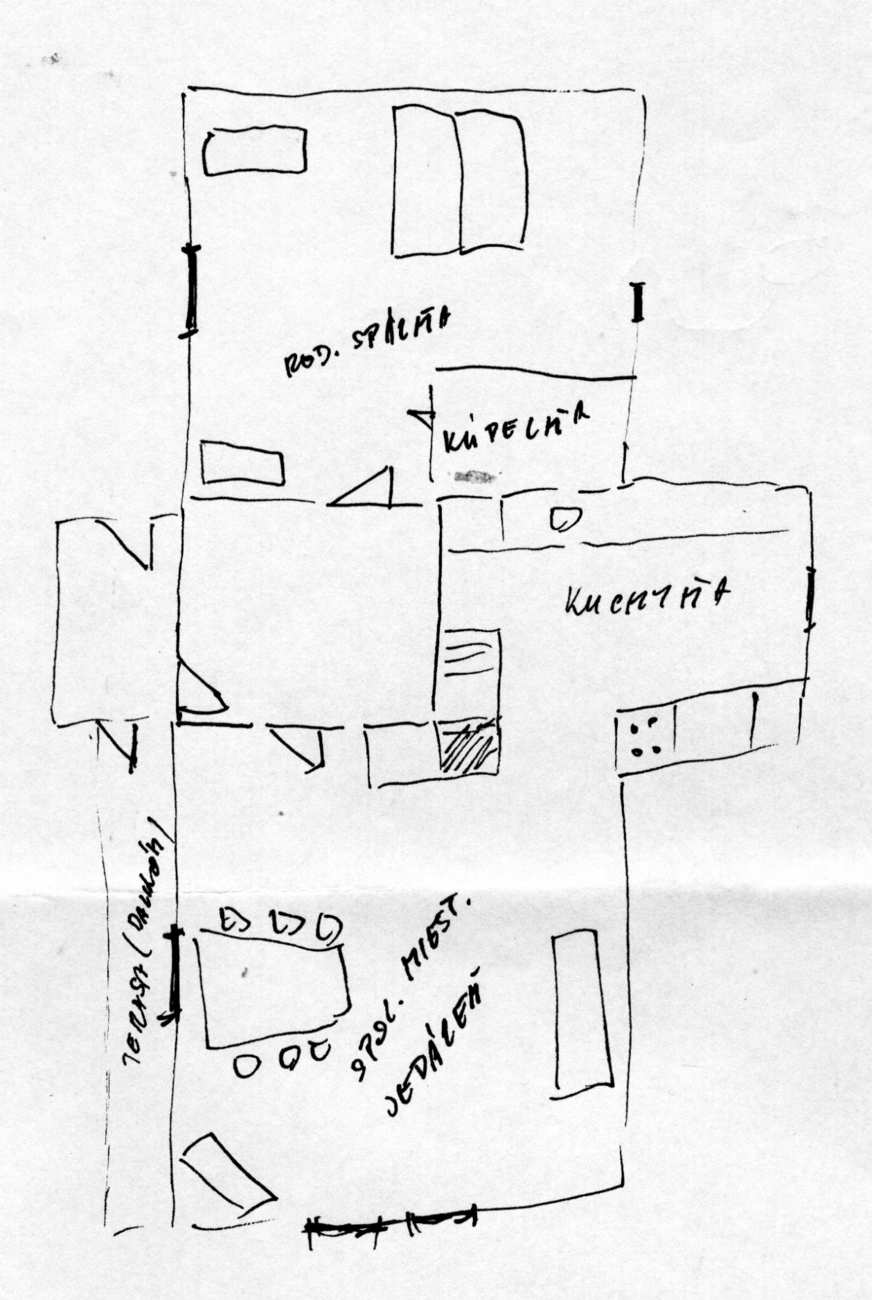 ROD. SPÁLŇA
KÚPELŇA
KUCHYŇA
TERASA (BALKÓN)
SPOL. MIEST.
JEDÁLEŇ